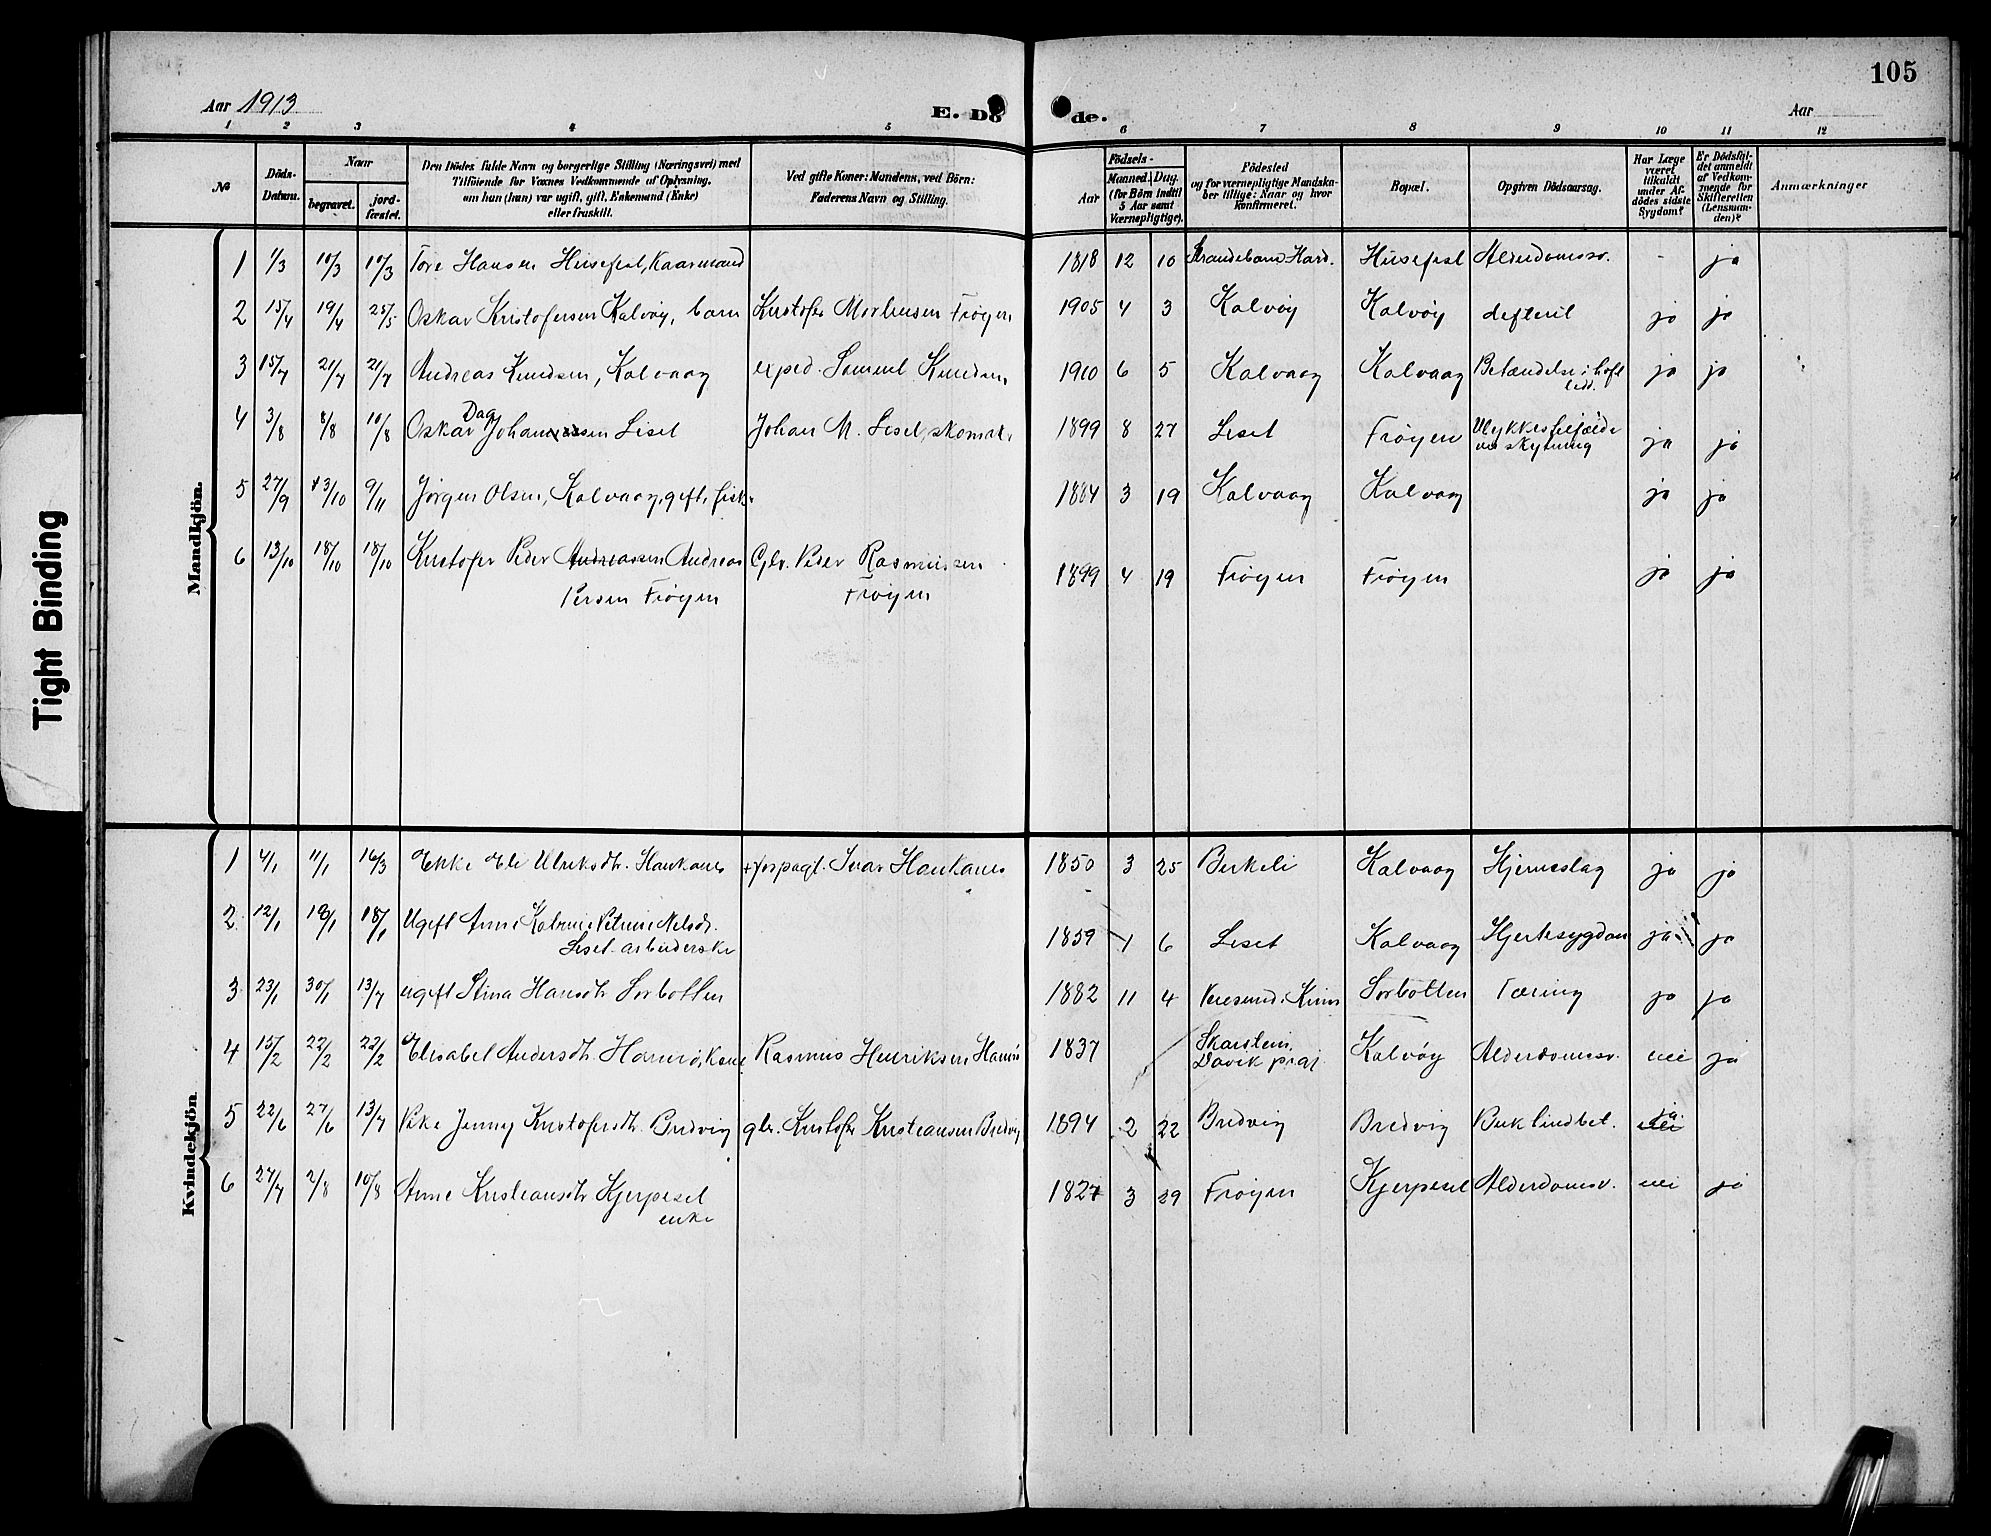 105
Aar 1913
E. Dö
de.
Aar
1 2 3 4 5 6 7 8 9 10 11 12
№
Döds-Datum.
Naar
begravet.
jord-fæstet.
Den Dödes fulde Navn og borgerlige Stilling (Næringsvei) med
Tilföiende for Voxnes Vedkommende af Oplysning,
om hun (han) var ugift, gift, Enkemand (Enke)
eller fraskilt.
Ved gifte Koner: Mandens, ved Börn:
Faderens Navn og Stilling.
Födsels-
Aar
Maaned. Dag.
(for Börn indtil
5 Aar samt
Værnepligtige).
Födested
og for værnepligtige Mandska-
ber tillige: Naar og hvor
konfirmeret.
Bopæl.
Opgiven Dödsaarsag.
Har Læge
været
tilkaldt
under Af-
dödes sidste
Sygdom?
Er Dödsfal-
det anmeldt
af Vedkom-
mende for
Skifteretten
(Lensman-
den)?
Anmærkninger
Mandkjön.
1 1/3 10/3 10/3 Tore Hansen Husefest, Kaarmand 1818 12 10 Strandebarm Hard. Husefest Alderdomssv. - ja
2 15/4 19/4 25/5 Oskar Kristofersen Kalvöy, barn Kristofer Frøyen 1905 4 3 Kalvöy Kalvöy defterit ja ja
3 15/7 21/7 21/7 Andreas Knudsen, Kalvaag exped. Samuel Knudsen 1910 6 5 Kalvaag Kalvaag Betændelse i hoft
ledd. ja ja
4 3/8 8/8 10/8 Oskar Dag Johannessen Liset Johan M. Liset, skomak. 1899 8 27 Liset Frøyen Ulykkestilfælde
skytning ja ja
5 27/9 3/10 9/11 Jørgen Olsen, Kalvaag, gift, fisk. 1864 3 19 Kalvaag Kalvaag ja ja
6 13/10 18/10 18/10 Kristofer Peder Andreassen Andreas
Persen Frøyen Gbr. Peder Rasmussen
Frøyen 1899 4 19 Frøyen Frøyen ja ja
Kvindekjön.
1 4/1 11/1 16/3 Enke Eli Ulriksdtr. Haukanes + forpagt. Ivar Haukanes 1850 3 25 Birkeli Kalvaag Hjerneslag ja ja
2 12/1 18/1 Ugift Anne Katrine Petrine Nelsdr.
Liset arbeiderske 1859 1 6 Liset Kalvaag Hjertesygdom ja ja
3 23/1 30/1 13/7 ugift Stina Hansdtr Sørbotten 1882 11 4 Kinn Sørbotten Tæring ja ja
4 15/2 22/2 22/2 Elisabet Andersdtr. Hamnø, Kone Rasmus Henriksen Hamnö 1837 Skarstein,
Davik prgj. Kalvöy Alderdomssv. nei ja
5 22/6 27/6 13/7 Pike Jenny Kristofersdtr. Bredvig gbr. Kristofer Kristiansen Bredvig 1894 2 22 Bredvig Bredvig Bukhindbet. ja
nei
6 27/7 2/8 10/8 Anne Kristiansdtr Kjerpeset
enke 1827 3 29 Frøyen Kjerpeset Alderdomsv. nei ja
Tight Binding